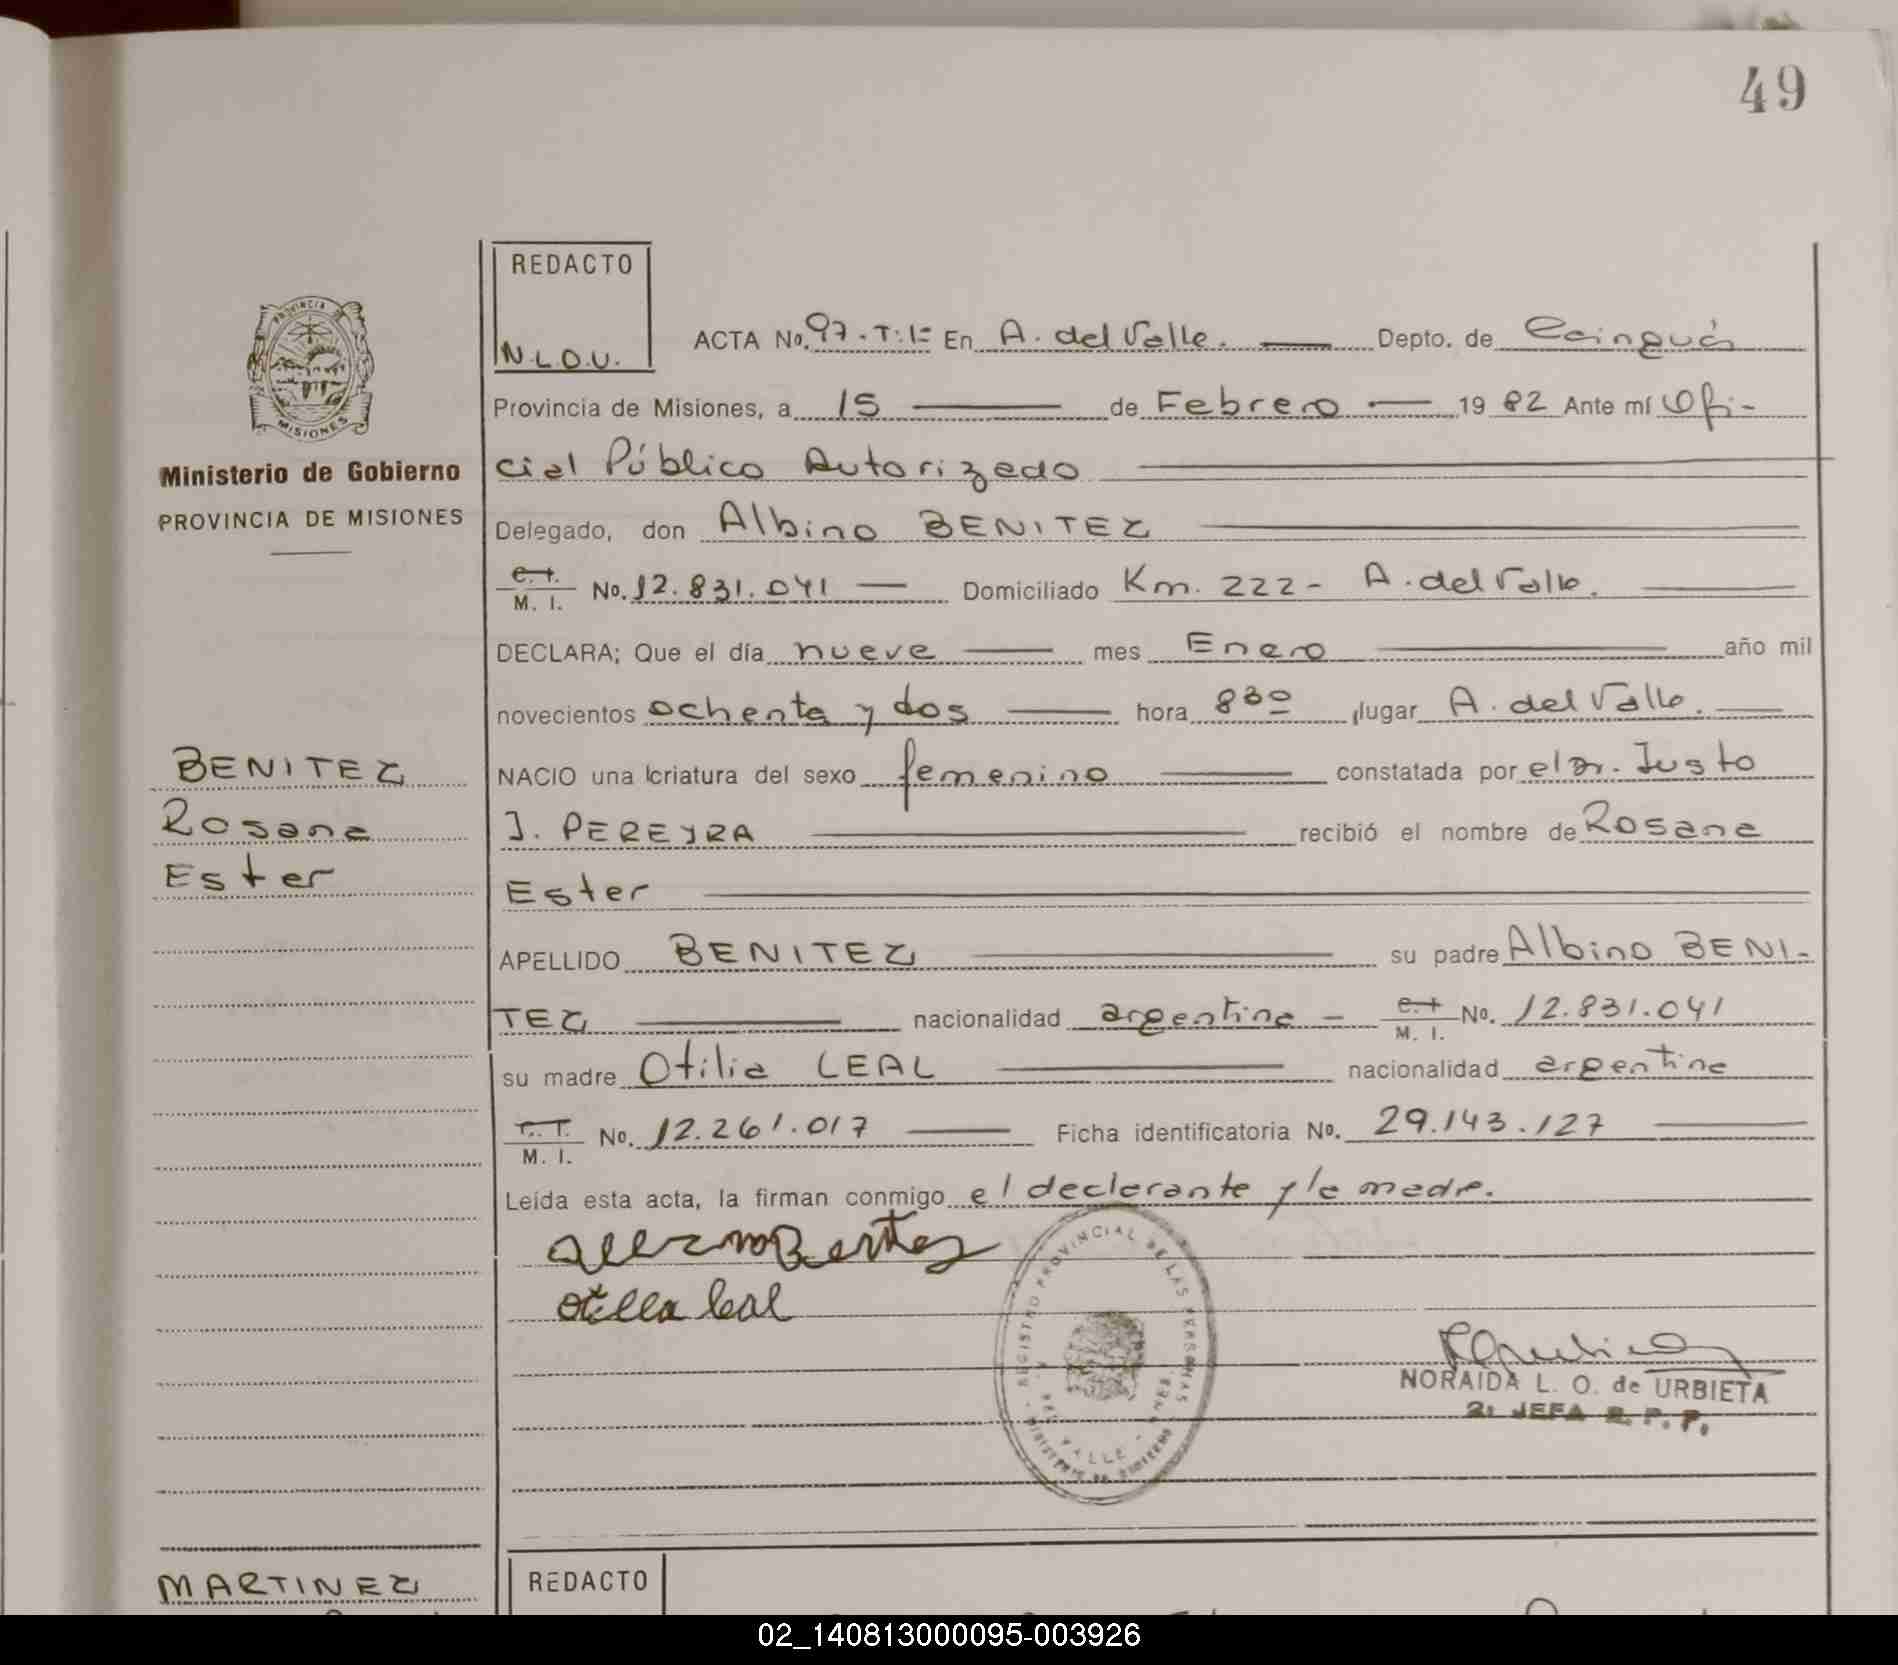 49
REDACTO
N.L.O.U.
PROVINCIA DE
MISIONES
Ministerio de Gobierno
PROVINCIA DE MISIONES
ACTA No. 97.T:1º En A. del Valle. Depto. de Cainguás
Provincia de Misiones, a 15 de Febrero 19 82 Ante mí Ofi-
cial Público Autorizado
Delegado, don Albino BENITEZ
M. I. No. 12.831.041 Domiciliado Km. 222 - A. del Valle.
DECLARA; Que el día nueve mes Enero año mil
novecientos ochenta y dos hora 830 lugar A. del Valle.
NACIO una criatura del sexo femenino constatada por el Dr. Justo
J. PEREYRA recibió el nombre de Rosana
Ester
APELLIDO BENITEZ su padre Albino BENI-
TEZ nacionalidad argentina - M. I. No. 12.831.041
su madre Otilia LEAL nacionalidad argentina
M. I. No. 12.261.017 Ficha identificatoria No. 29.143.127
Leída esta acta, la firman conmigo el declarante y la madre.
otilia leal
BENITEZ
Rosana
Ester
REGISTRO PROVINCIAL DE LAS PERSONAS
DEL VALLE
NORAIDA L. O. de URBIETA
2: JEFA R. P. P.
MARTINEZ
REDACTO
02_140813000095-003926